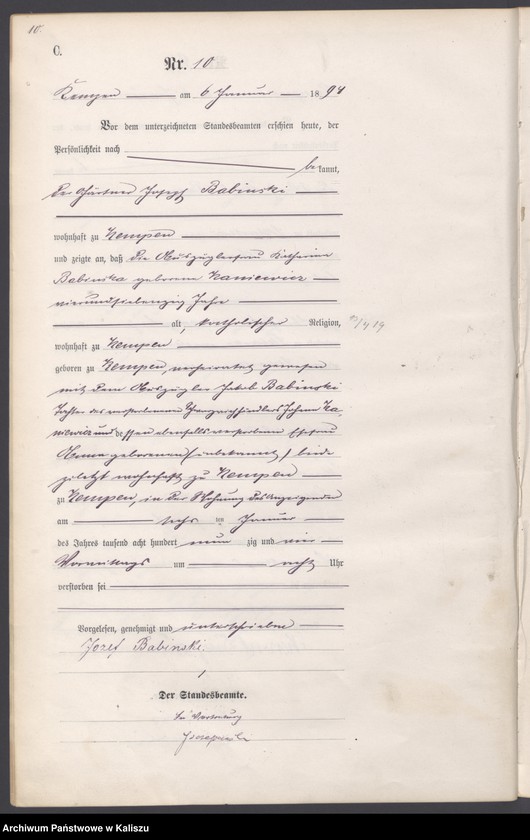 10.
C.
Nr. 10
Kempen am 6 Januar 1894
Vor dem unterzeichneten Standesbeamten erschien heute, der
Persönlichkeit nach
bekannt,
der Gärtner Joseph Babinski
wohnhaft zu Kempen
und zeigte an, daß die Auszüglerfrau Katharina
Babinska geborene Kaniewicz
vierundsiebenzig Jahre
alt, katholischer Religion,
wohnhaft zu Kempen
geboren zu Kempen, verheiratet gewesen
mit dem Auszügler Jakob Babinski
Tochter des verstorbenen Johann Ka-
niewicz und dessen ebenfalls verstorbenen Ehefrau
geborenen (unbekannt) beide
zuletzt wohnhaft zu Kempen
zu Kempen, in der Wohnung des Anzeigenden
am sechs ten Januar
des Jahres tausend acht hundert neun zig und vier
Vormittags um acht Uhr
verstorben sei
Vorgelesen, genehmigt und unterschrieben
Jozef Babinski
Der Standesbeamte.
In Vertretung
Archiwum Państwowe w Kaliszu